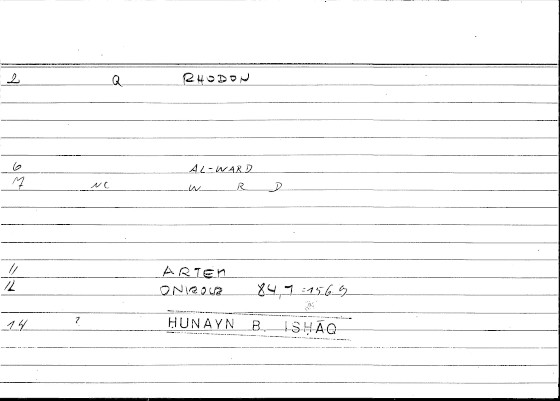 2 Q RHODON
6 AL-WARD
7 NC W R D
11 ARTEM
12 ONIROCR 84,7 =156,9
14 ? HUNAYN B. ISHĀQ